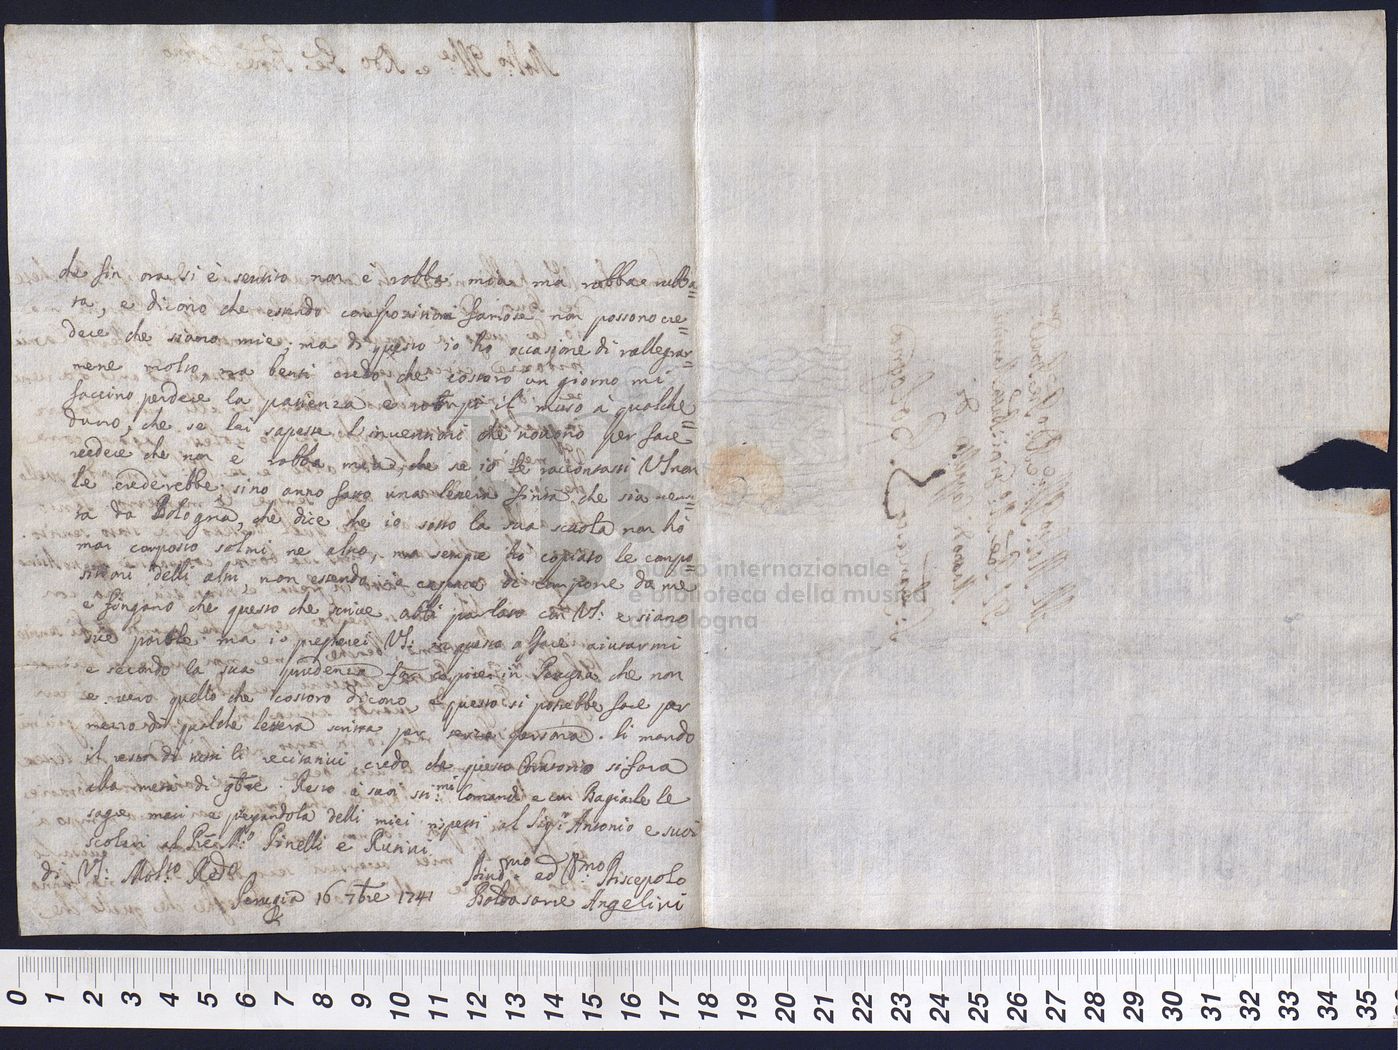 che fin ora si è sentito non è robba mia ma robba rubba=
ta, e dicono che essendo composizioni famose non possono cre=
dere che siano mie; ma di questo io ho occasione di rallegrar=
mene molto, ma bensi credo che costoro un giorno mi
faccino perdere la pazienza e rompi il muso à qualche=
duno, che se lei sapesse l'invenzioni che trovono per fare
credere che non è robba mia che se io le raccontassi VS non
le crederebbe; sino anno fatto una lettera finta che sia venu=
ta da Bologna, che dice che io sotto la sua scuola non hò
mai composto solmi ne altro, ma sempre hò copiato le compo=
sizioni delli altri, non essendo io capace di comporre da me
e fingano che questo che scrive abbi parlato con VS: e siano
sue parole ma io pregherei VS: in questo affare aiutarmi
e secondo la sua prudenza far capire in Perugia che non
è vero quello che costoro dicono e questo si potrebbe fare per
mezzo di qualche lettera scritta per terza persona. li mando
il resto di tutti li recitativi, credo che questo Oratorio si farà
alla metà di 9bre. Resto à suoi sti:mi Comandi e con Bagiarle le
sagre mani e pregandola delli miei rispetti al Sigr Antonio e suoi
scolari al Pre Mro Pinelli e Rutini
di VS: Molto Reda
Perugia 16 7bre 1741
Aind:mo ed Obmo Discepolo
Baldasarre Angelini
museo internazionale
e biblioteca della musica
di bologna
0 1 2 3 4 5 6 7 8 9 10 11 12 13 14 15 16 17 18 19 20 21 22 23 24 25 26 27 28 29 30 31 32 33 34 35